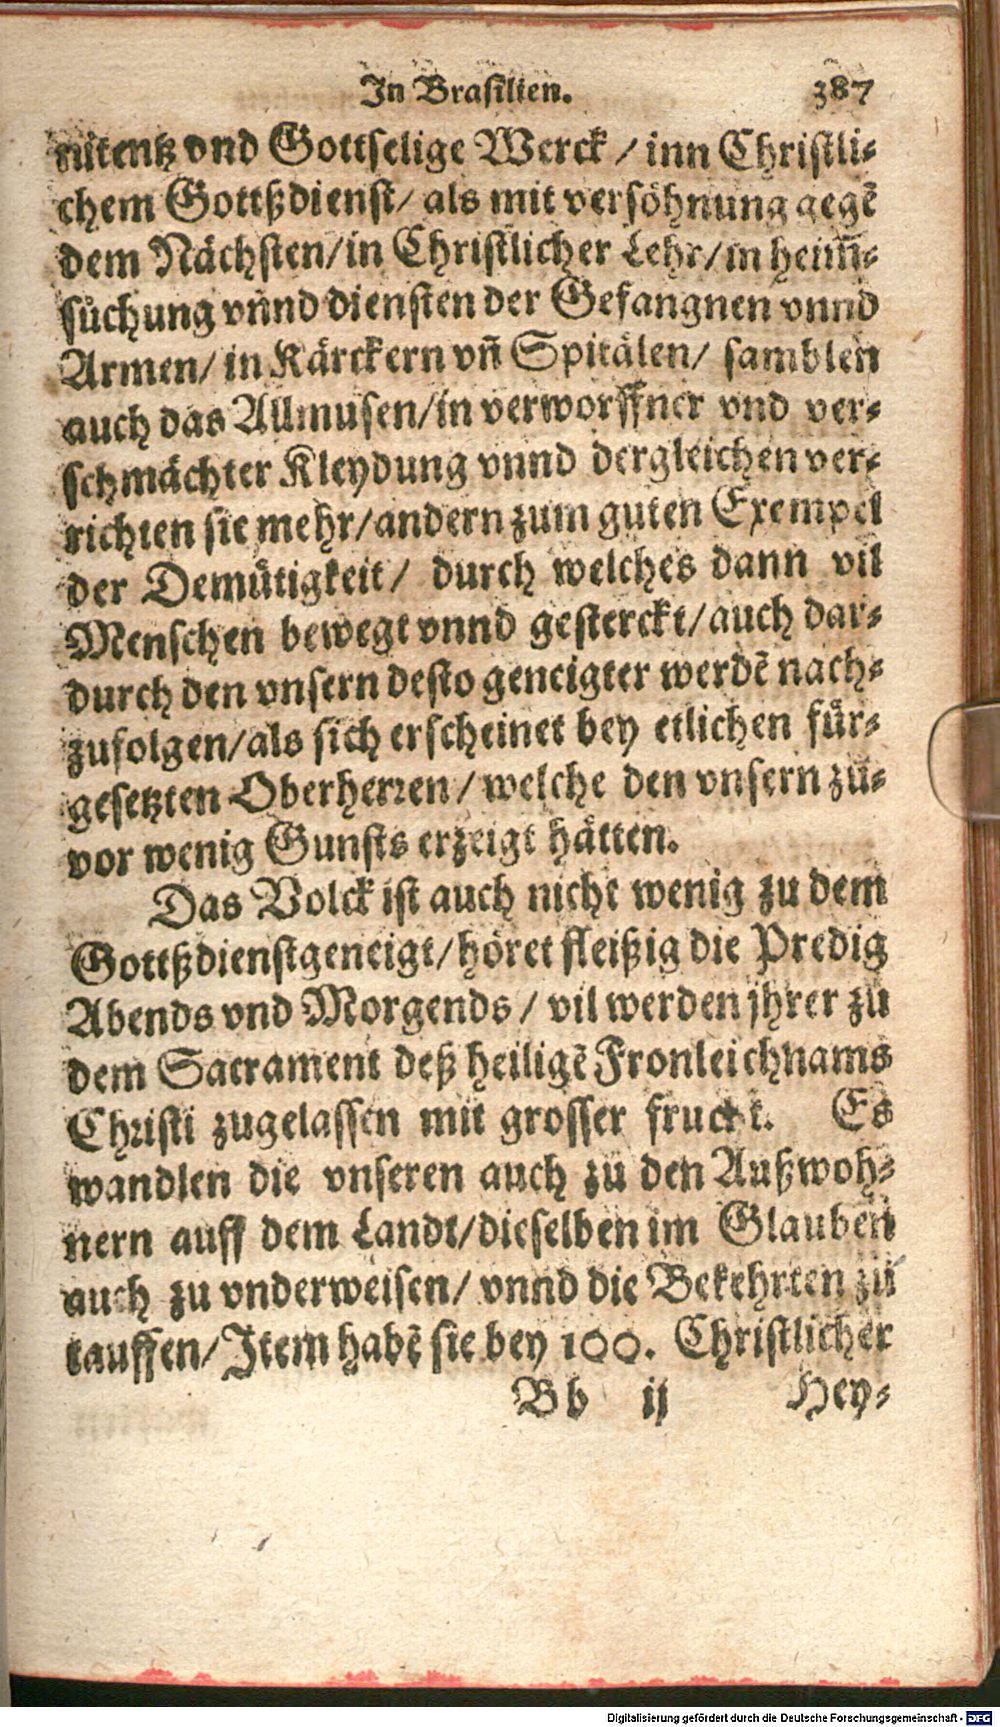 In Brasilien. 387
nitentz vnd Gottselige Werck / inn Christli-
chem Gottßdienst/ als mit versöhnung gegē
dem Nächsten/in Christlicher Lehr/in heim̄-
süchung vnnd diensten der Gefangnen vnnd
Armen/ in Kärckern vn̄ Spitälen/ samblen
auch das Allmusen/in verworffner vnd ver-
schmächter Kleydung vnnd dergleichen ver-
richten sie mehr/andern zum guten Exempel
der Demütigkeit/ durch welches dann vil
Menschen bewegt vnnd gesterckt/auch dar-
durch den vnsern desto geneigter werdē nach-
zufolgen/als sich erscheinet bey etlichen für-
gesetzten Oberherren/ welche den vnsern zu-
vor wenig Gunsts erzeigt hätten.
Das Volck ist auch nicht wenig zu dem
Gottßdienst geneigt/höret fleißig die Predig
Abends vnd Morgends / vil werden jhrer zu
dem Sacrament deß heiligē Fronleichnams
Christi zugelassen mit grosser frucht. Es
wandlen die vnseren auch zu den Außwoh-
nern auff dem Landt/dieselben im Glauben
auch zu vnderweisen/ vnnd die Bekehrten zu
tauffen/Item habē sie bey 100. Christlicher
B b ij Hey-
Digitalisierung gefördert durch die Deutsche Forschungsgemeinschaft - DFG